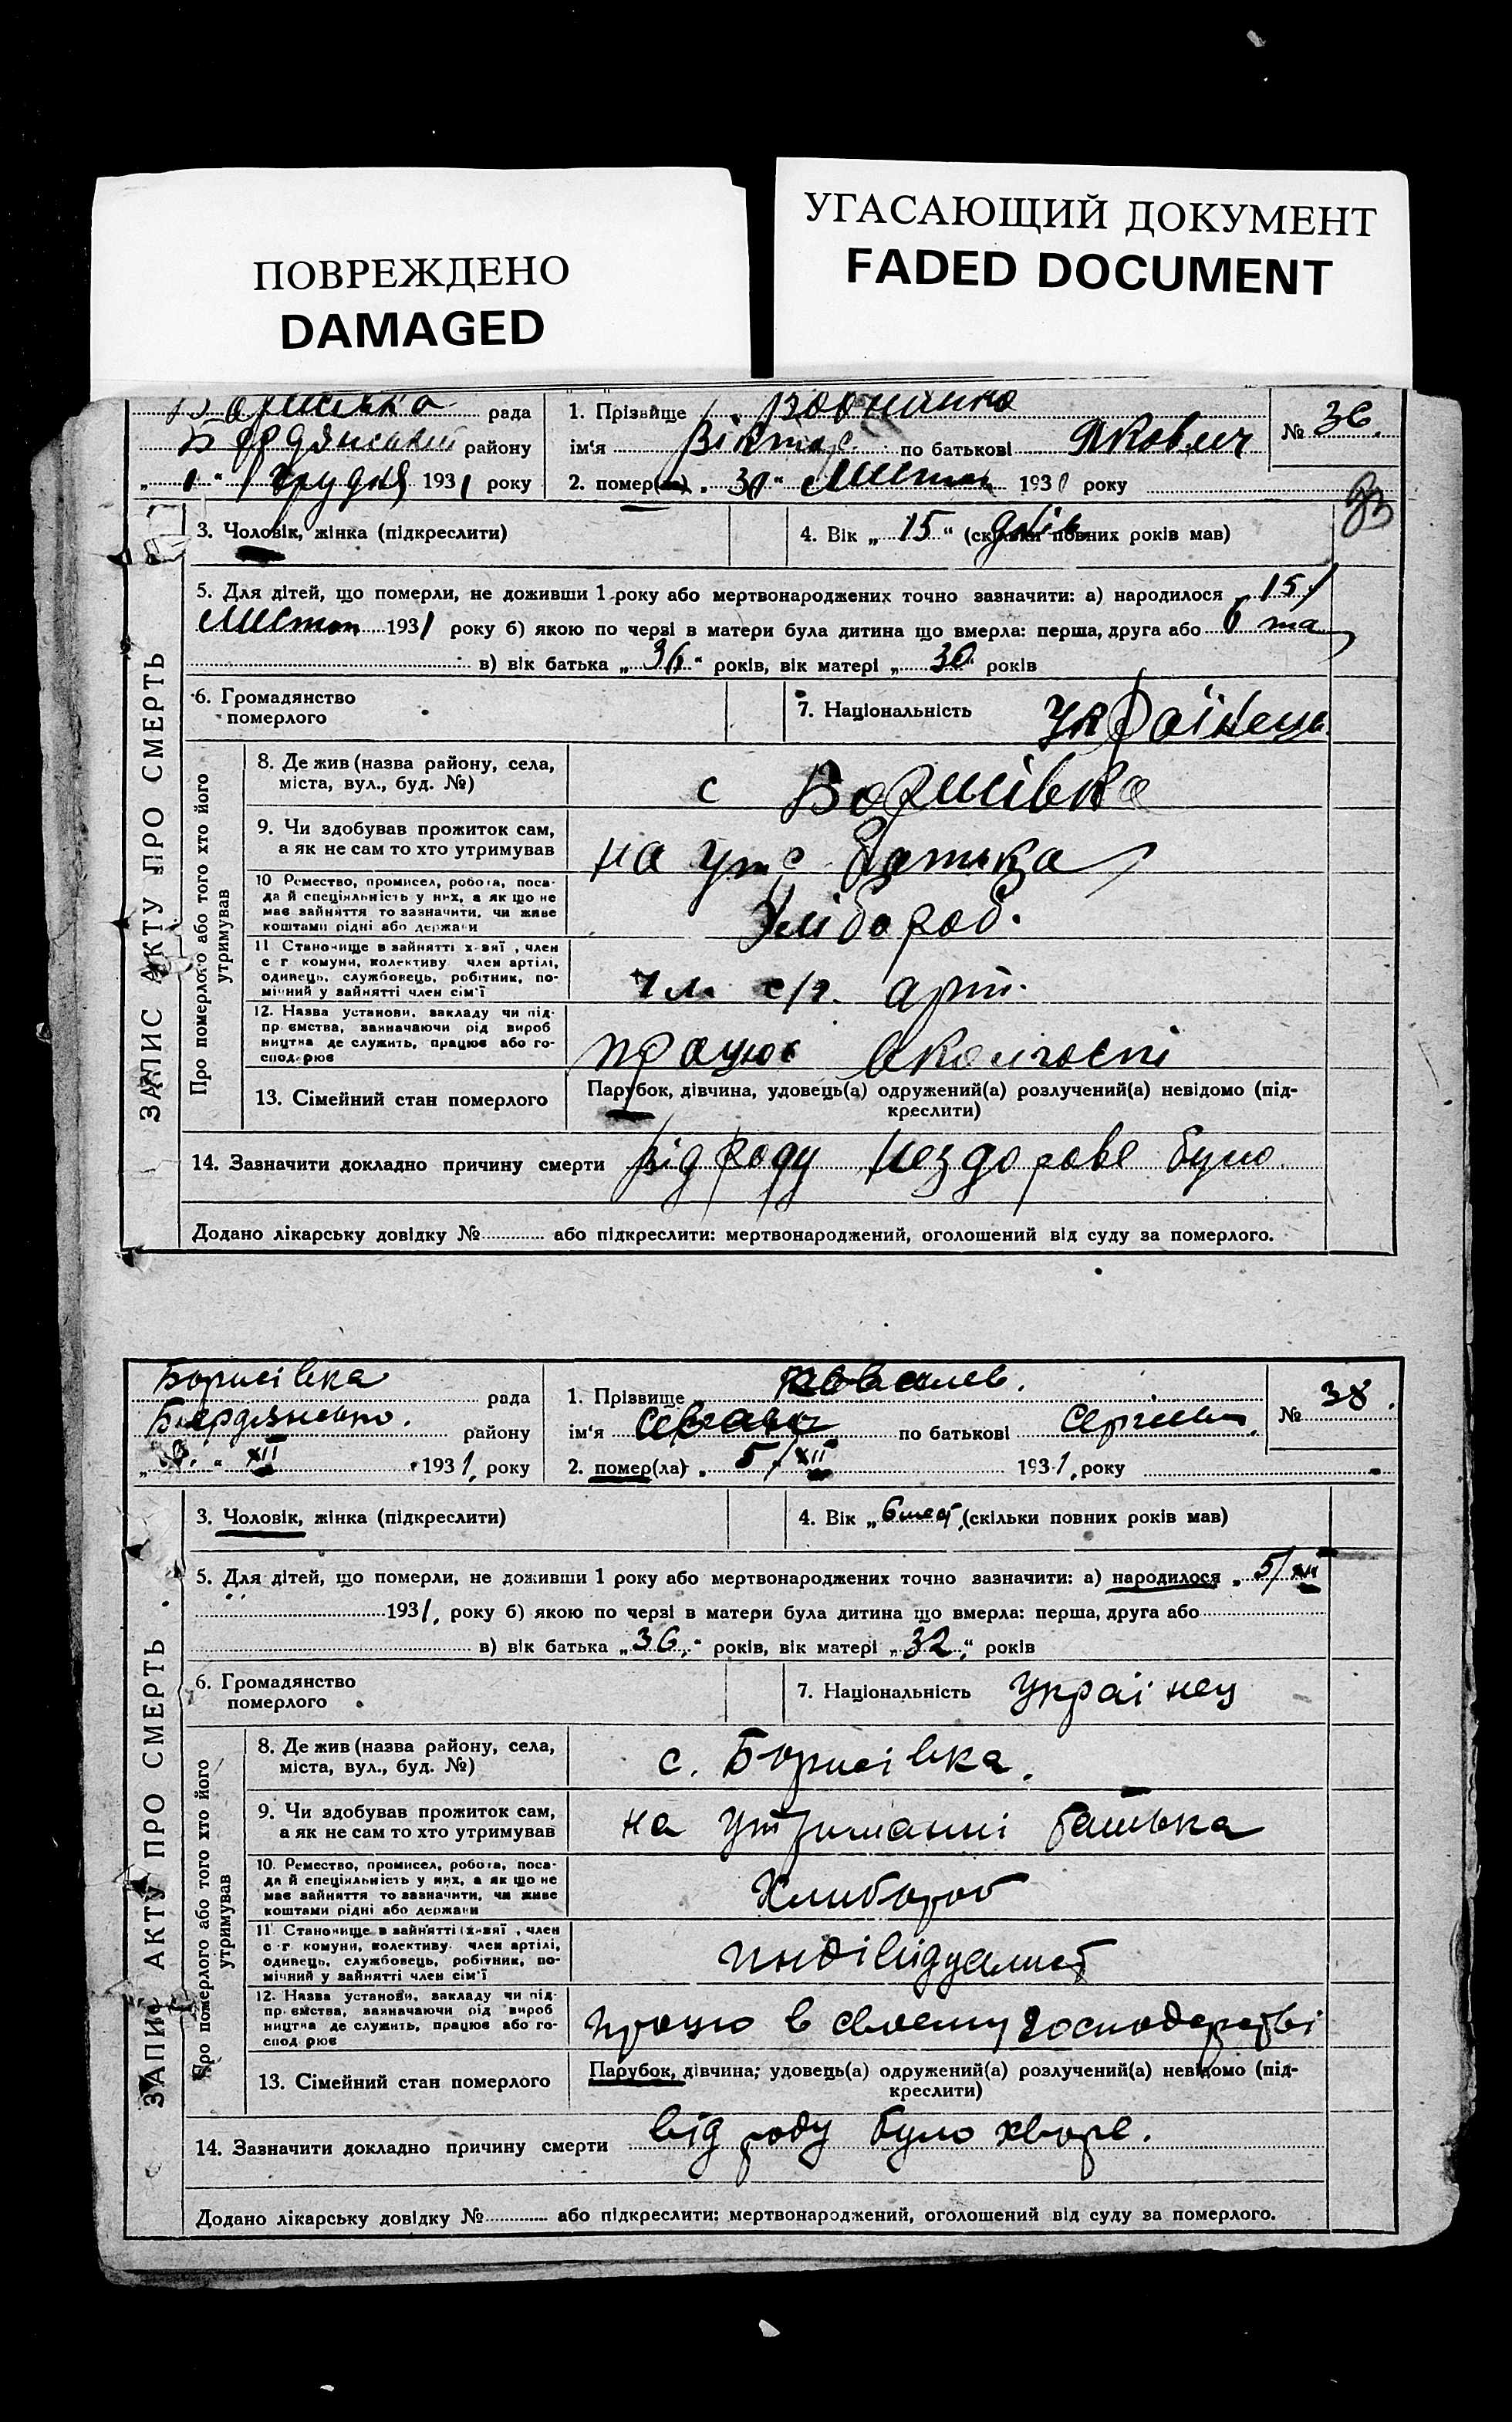 ПОВРЕЖДЕНО
DAMAGED
УГАСАЮЩИЙ ДОКУМЕНТ
FADED DOCUMENT
рада
Бердянський району
„ 1 “ грудня 1931 року
1. Прізвище
ім'я Віктор по батькові Якович
2. помер(ла) „ 30 “ листоп 1931 року
№ 36.
ЗАПИС АКТУ ПРО СМЕРТЬ
3. Чоловік, жінка (підкреслити)
4. Вік „ 15 “ днів (скільки повних років мав)
5. Для дітей, що померли, не доживши 1 року або мертвонароджених точно зазначити: а) народилося 15/
листоп 1931 року б) якою по черзі в матери була дитина що вмерла: перша, друга або 6 та
в) вік батька „ “ років, вік матері „ 30 “ років
6. Громадянство
померлого
7. Національність Українець
Про померлого або того хто його
утримував
8. Де жив (назва району, села,
міста, вул., буд. №)
с Борисівка
9. Чи здобував прожиток сам,
а як не сам то хто утримував
на ут батька
10 Ремество, промисел, робота, поса-
да й спеціяльність у них, а як що не
має зайняття то зазначити, чи живе
коштами рідні або держави
Хлібороб.
11 Становище в зайнятті хазяї , член
с г комуни, колективу член артілі,
одинець, службовець, робітник, по-
мічний у зайнятті член сім'ї
чл. с/г. арт.
12. Назва установи, закладу чи під-
пр ємства, зазначаючи рід вироб
ництва де служить, працює або го-
спод рює
працює
13. Сімейний стан померлого
Парубок, дівчина, удовець(а) одружений(а) розлучений(а) невідомо (під-
креслити)
14. Зазначити докладно причину смерти від роду нездорове було
Додано лікарську довідку № або підкреслити: мертвонароджений, оголошений від суду за померлого.
Борисівка рада
Бердянсько. району
XII 1931, року
1. Прізвище Ковалев.
ім'я по батькові Сергиевич
2. помер(ла) „ 5/XII 1931, року
№ 38.
ЗАПИС АКТУ ПРО СМЕРТЬ
3. Чоловік, жінка (підкреслити)
4. Вік „ (скільки повних років мав)
5. Для дітей, що померли, не доживши 1 року або мертвонароджених точно зазначити: а) народилося „ 5/XII
1931, року б) якою по черзі в матери була дитина що вмерла: перша, друга або
в) вік батька „ 36, “ років, вік матері „ 32, “ років
6. Громадянство
померлого
7. Національність Украінец
Про померлого або того хто його
утримував
8. Де жив (назва району, села,
міста, вул., буд. №)
с. Борисівка.
9. Чи здобував прожиток сам,
а як не сам то хто утримував
на утриманні батька
10. Ремество, промисел, робота, поса-
да й спеціяльність у них, а як що не
має зайняття то зазначити, чи живе
коштами рідні або держави
Хлибороб
11 Становище в зайнятті хазяї , член
с г комуни, колективу член артілі,
одинець, службовець, робітник, по-
мічний у зайнятті член сім'ї
индівидуалист
12. Назва установи, закладу чи під-
пр ємства, зазначаючи рід вироб
ництва де служить, працює або го-
спод рює
працю в своему господарстві
13. Сімейний стан померлого
Парубок, дівчина; удовець(а) одружений(а) розлучений(а) невідомо (під-
креслити)
14. Зазначити докладно причину смерти від роду було хворе.
Додано лікарську довідку № або підкреслити: мертвонароджений, оголошений від суду за померлого.